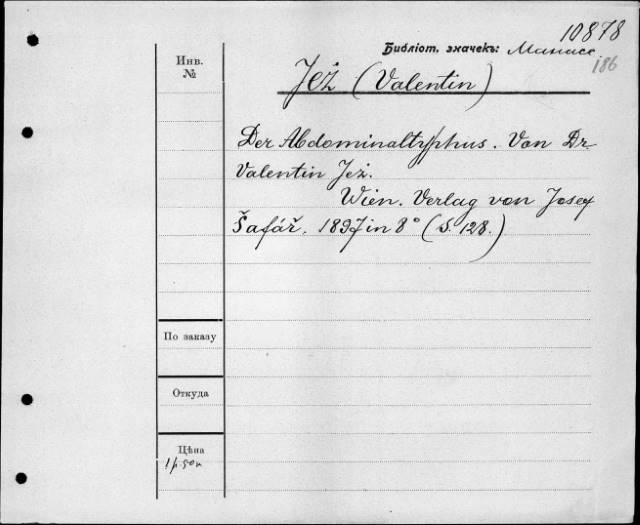 10878
Библіот. значекъ: Манасс.
186
Инв.
№
Jež (Valentin)
Der Abdominaltyphus. Von Dr
Valentin Jež.
Wien. Verlag von Josef
Šafář. 1897 in 8° (S. 128.)
По заказу
Откуда
Цѣна
1 р. 50 к